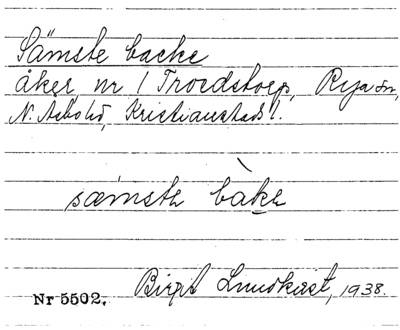 Sämste backe
åker nr 1 Troedstorp, Rya sn,
N. Åsbohd, Kristianstads l.
sæmstə bàkə
Nr 5502. Birgit Lundkvist, 1938.